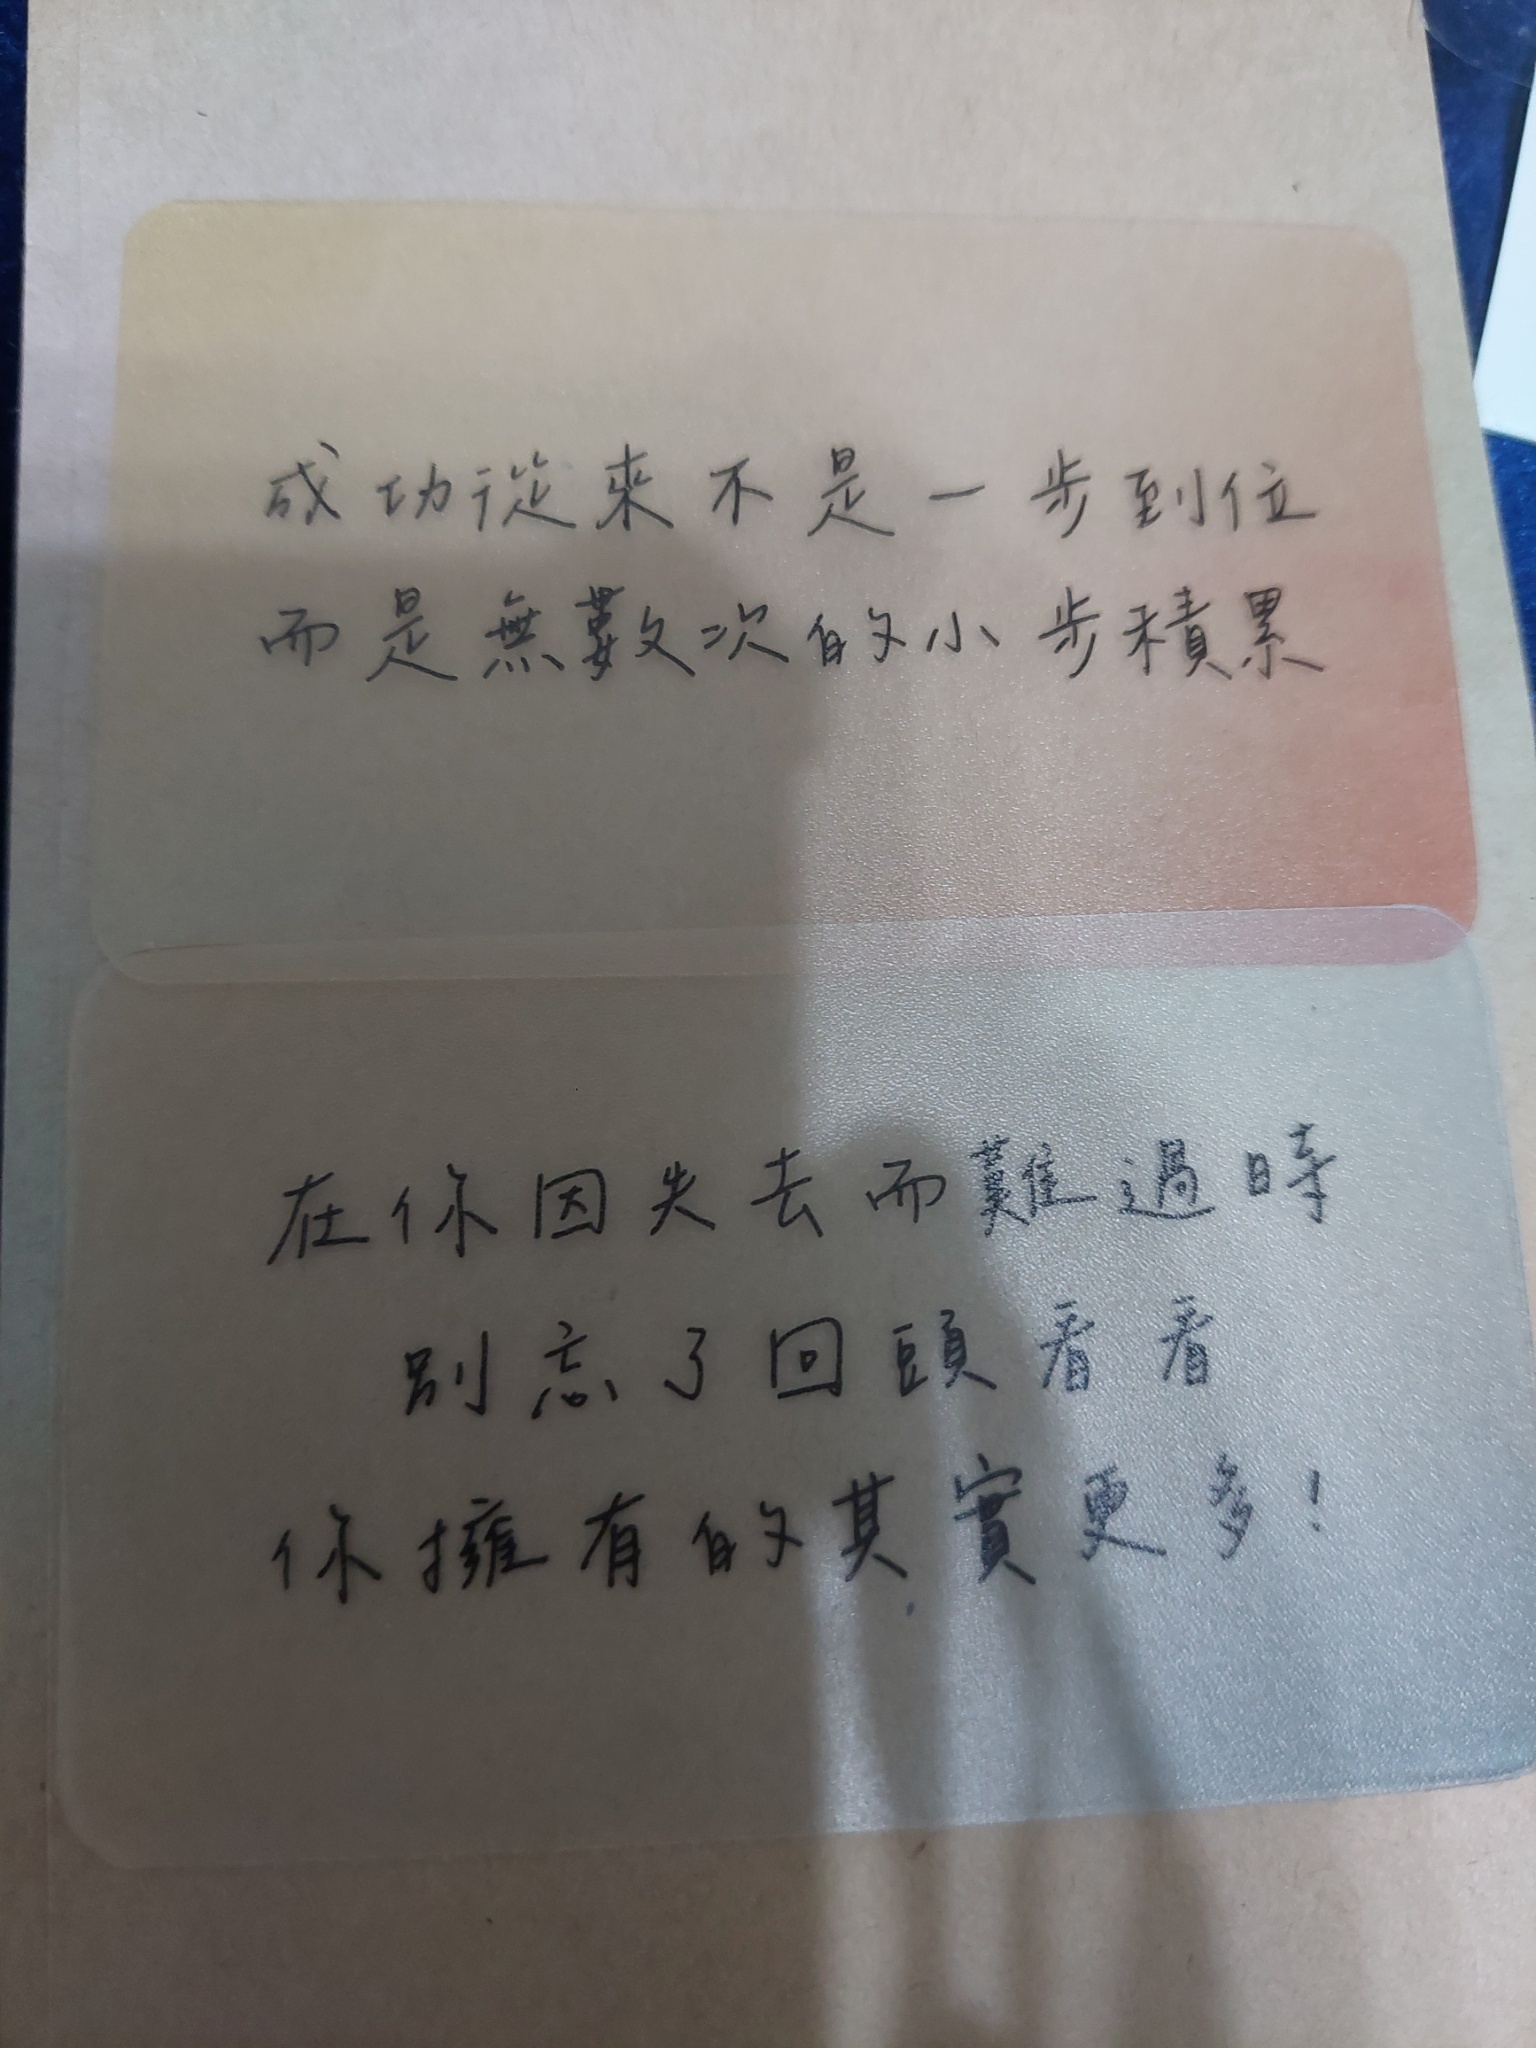 成功從來不是一步到位
而是無數次的小步積累
在你因失去而難過時
別忘了回頭看看
你擁有的其實更多!